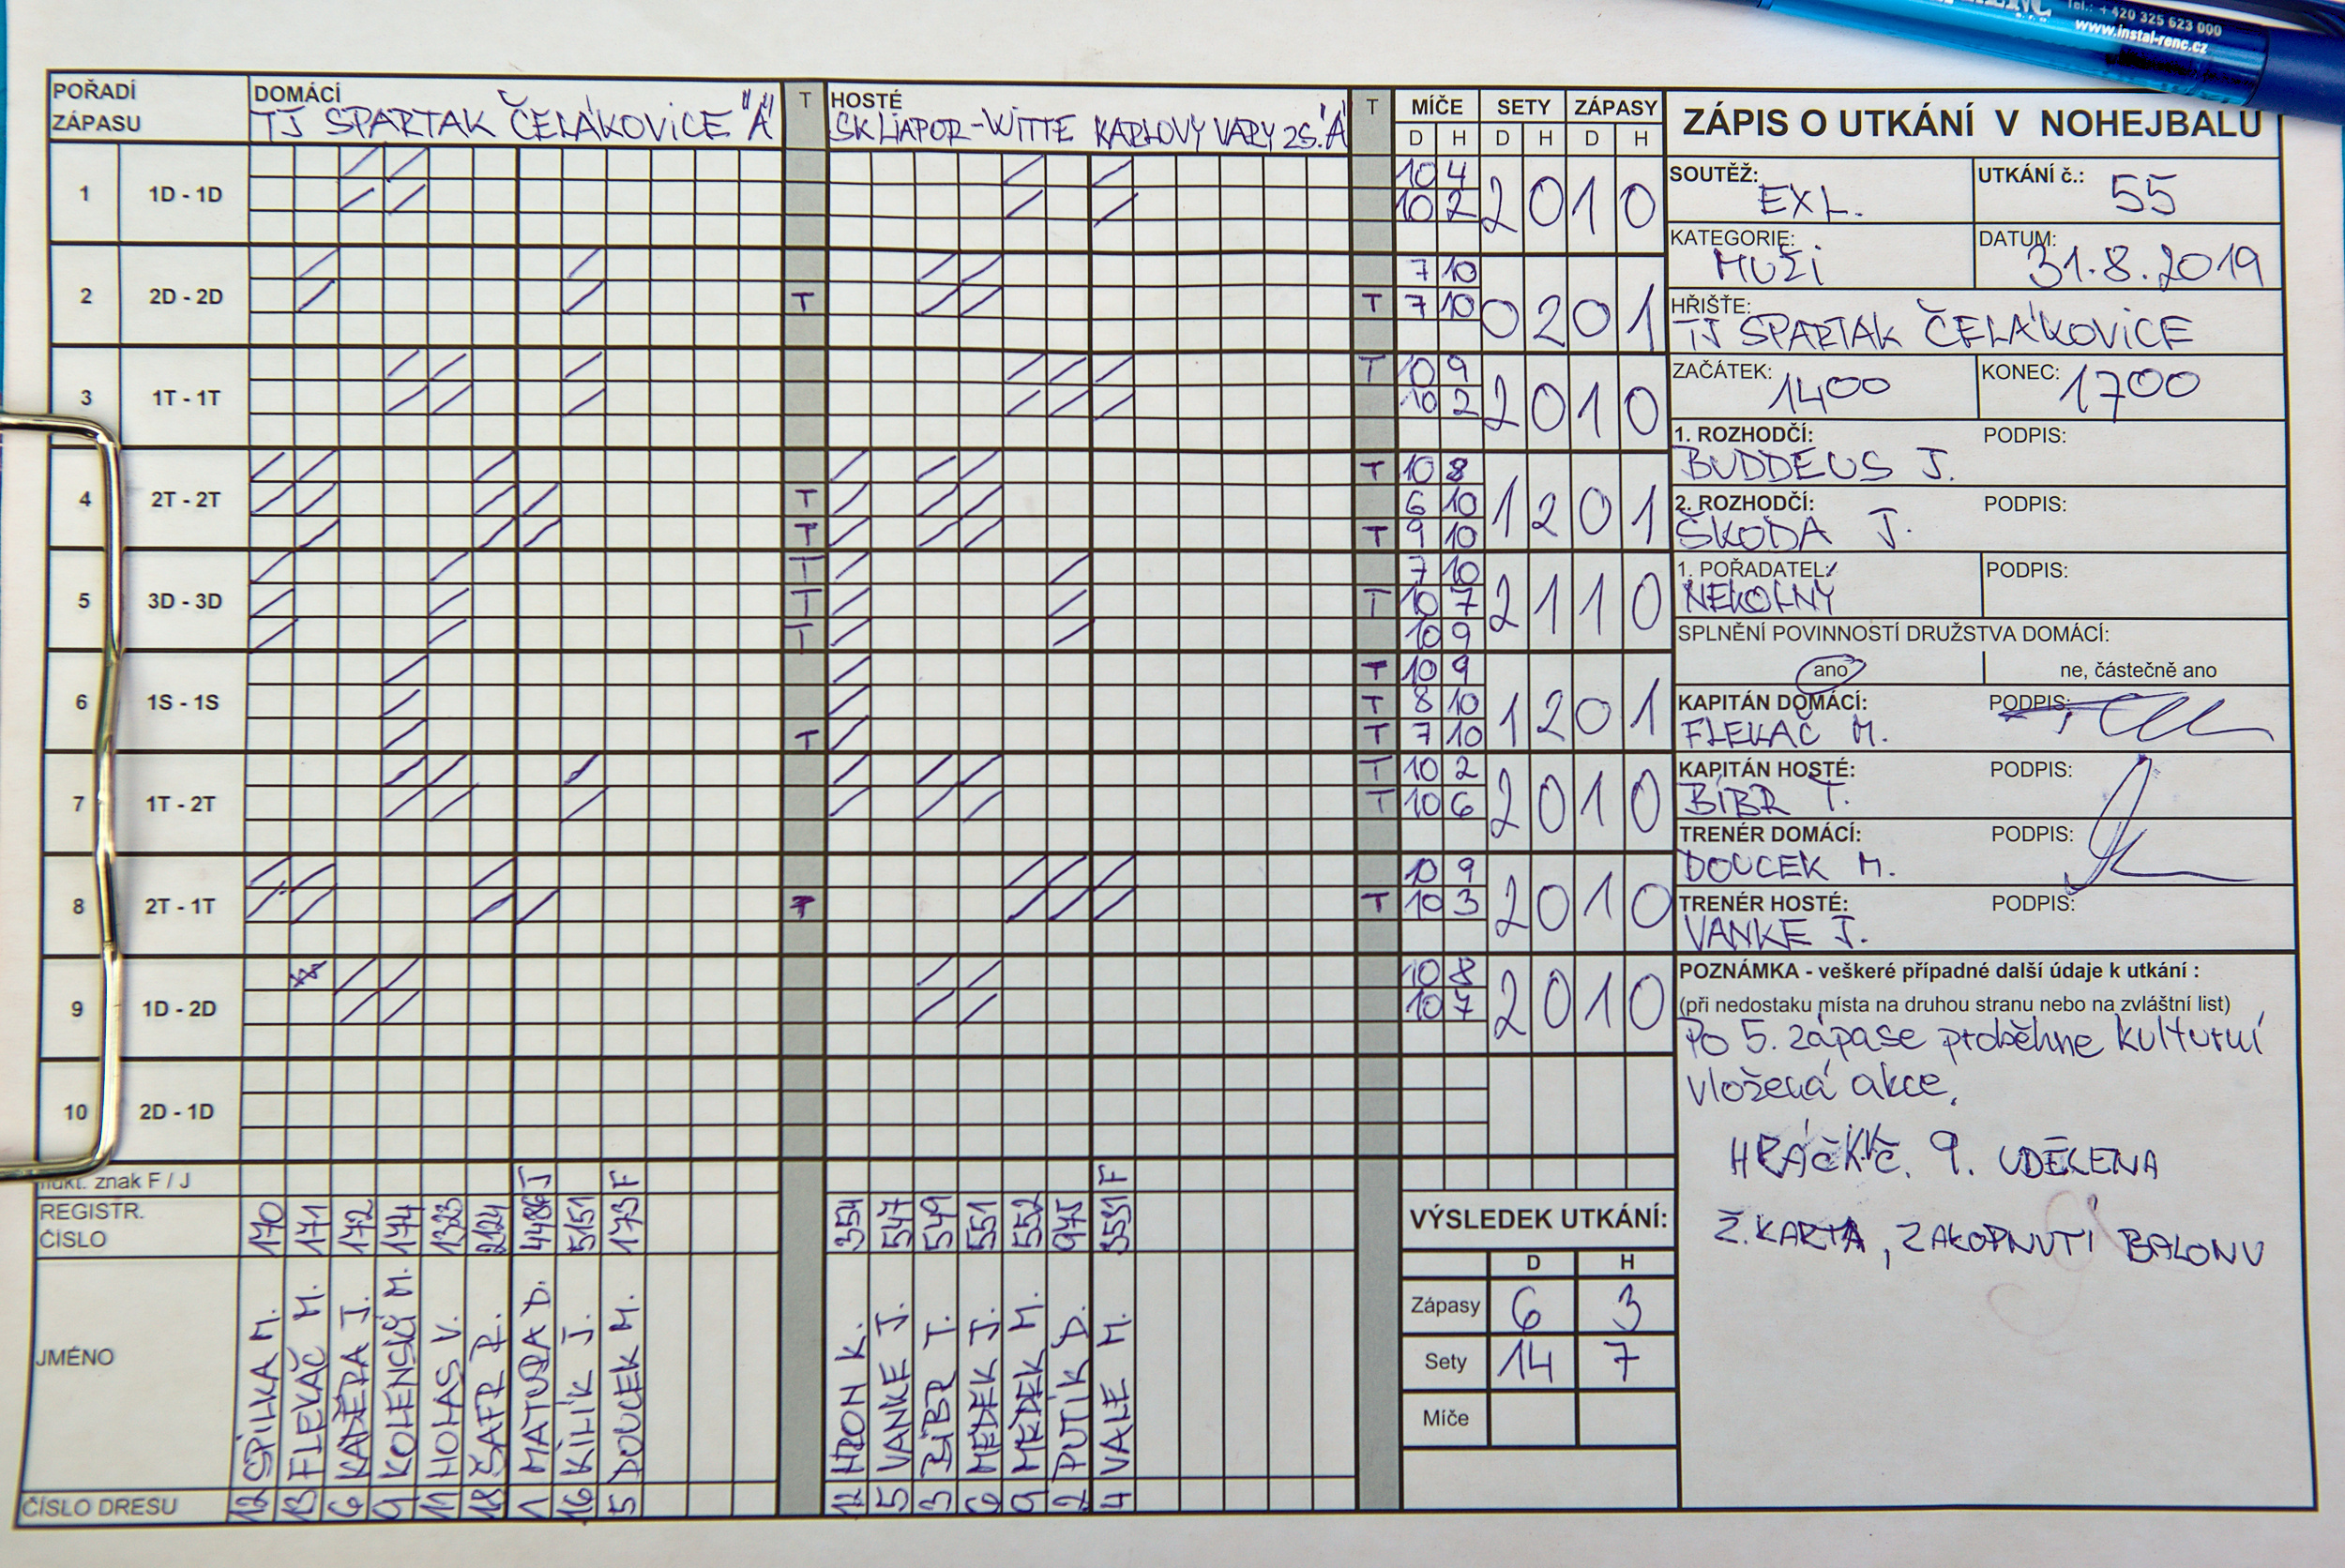 Tel.: +420 325 623 000
www.instal-renc.cz
POŘADÍ ZÁPASU
DOMÁCÍ
TJ SPARTAK ČELÁKOVICE "A"
T
HOSTÉ
SK LIAPOR-WITTE KARLOVY VARY ZS. "A"
T
MÍČE SETY ZÁPASY
D H D H D H
1 1D - 1D
10 4
10 2
2 0 1 0
2 2D - 2D
7 10
T T 7 10
0 2 0 1
3 1T - 1T
T 10 9
10 2
2 0 1 0
4 2T - 2T
T 10 8
T 6 10
T T 9 10
1 2 0 1
5 3D - 3D
T 7 10
T T 10 7
T 10 9
2 1 1 0
6 1S - 1S
T 10 9
T 8 10
T T 7 10
1 2 0 1
7 1T - 2T
T 10 2
T 10 6
2 0 1 0
8 2T - 1T
10 9
T T 10 3
2 0 1 0
9 1D - 2D
10 8
10 7
2 0 1 0
10 2D - 1D
znak F / J
J F F
REGISTR. ČÍSLO
170 171 172 174 1323 2124 4486 5151 173
354 547 549 551 552 975 3531
JMÉNO
SPILKA M.
FLEKAČ M.
KADĚRA J.
KOLENSKÝ M.
HOLAS V.
ŠAFR R.
MATURA D.
KILÍK J.
DOUCEK M.
HRON K.
VANKE J.
BÍBR T.
MEDEK J.
MEDEK M.
PUTÍK D.
VALE M.
ČÍSLO DRESU
12 13 6 9 11 18 1 16 5
12 5 3 6 9 2 4
VÝSLEDEK UTKÁNÍ:
D H
Zápasy 6 3
Sety 14 7
Míče
ZÁPIS O UTKÁNÍ V NOHEJBALU
SOUTĚŽ: EXL.
UTKÁNÍ č.: 55
KATEGORIE: MUŽI
DATUM: 31.8.2019
HŘIŠTĚ:
TJ SPARTAK ČELÁKOVICE
ZAČÁTEK: 1400
KONEC: 1700
1. ROZHODČÍ: PODPIS:
BUDDEUS J.
2. ROZHODČÍ: PODPIS:
ŠKODA J.
1. POŘADATEL: PODPIS:
NEKOLNÝ
SPLNĚNÍ POVINNOSTÍ DRUŽSTVA DOMÁCÍ:
ano ne, částečně ano
KAPITÁN DOMÁCÍ: PODPIS:
FLEKAČ M.
KAPITÁN HOSTÉ: PODPIS:
BÍBR T.
TRENÉR DOMÁCÍ: PODPIS:
DOUCEK M.
TRENÉR HOSTÉ: PODPIS:
VANKE J.
POZNÁMKA - veškeré případné další údaje k utkání :
(při nedostaku místa na druhou stranu nebo na zvláštní list)
Po 5. zápase proběhne kulturní
vložená akce.
HRÁČK č. 9. UDĚLENA
Ž. KARTA, ZAKOPNUTÍ BALONU